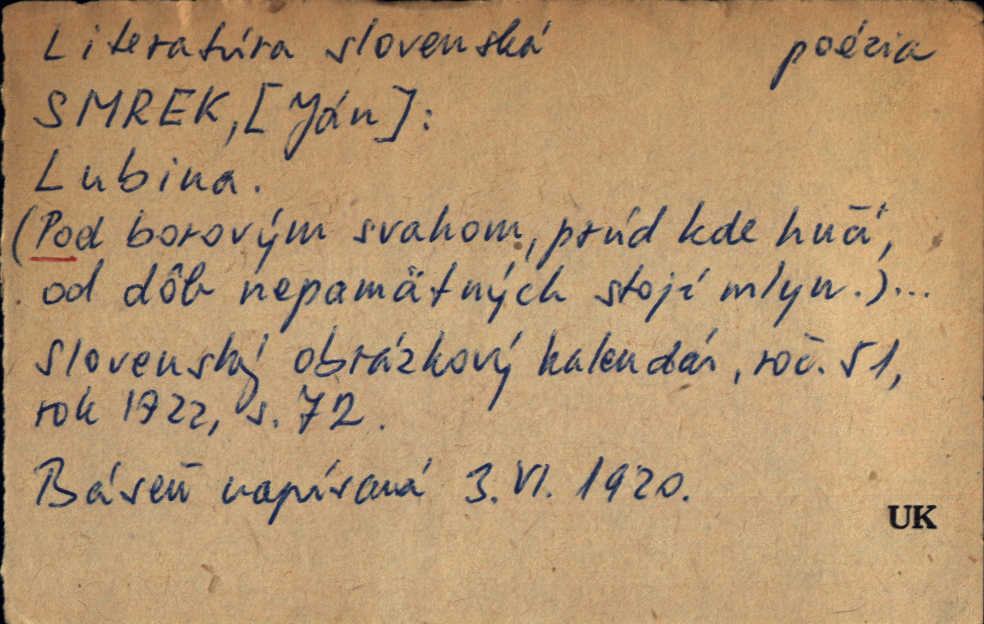 Literatúra slovenská poézia
SMREK, [Ján]:
Lubina.
(Pod borovým svahom, prúd kde hučí,
od dôb nepamätných stojí mlyn.)...
Slovenský obrázkový kalendár, roč. 51,
rok 1922, s. 72.
Báseň napísaná 3. VI. 1920.
UK